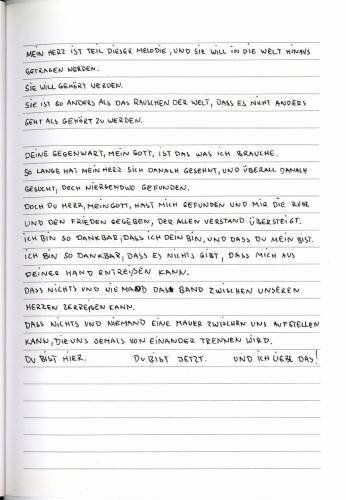 MEIN HERZ IST TEIL DIESER MELODIE, UND SIE WILL IN DIE WELT HINAUS
GETRAGEN WERDEN.
SIE WILL GEHÖRT WERDEN.
SIE IST SO ANDERS ALS DAS RAUSCHEN DER WELT, DASS ES NICHT ANDERS
GEHT ALS GEHÖRT ZU WERDEN.
DEINE GEGENWART, MEIN GOTT, IST DAS WAS ICH BRAUCHE.
SO LANGE HAT MEIN HERZ SICH DANACH GESEHNT, UND ÜBERALL DANACH
GESUCHT, DOCH NIERGENDWO GEFUNDEN.
DOCH DU HERR, MEIN GOTT, HAST MICH GEFUNDEN UND MIR DIE RUHE
UND DEN FRIEDEN GEGEBEN, DER ALLEN VERSTAND ÜBERSTEIGT.
ICH BIN SO DANKBAR, DASS ICH DEIN BIN, UND DASS DU MEIN BIST.
ICH BIN SO DANKBAR, DASS ES NICHTS GIBT, DASS MICH AUS
DEINER HAND ENTREIßEN KANN.
DASS NICHTS UND NIEMAND DAS BAND ZWISCHEN UNSEREN
HERZEN ZERREIßEN KANN.
DASS NICHTS UND NIEMAND EINE MAUER ZWISCHEN UNS AUFSTELLEN
KANN, DIE UNS JEMALS VON EINANDER TRENNEN WIRD.
DU BIST HIER. DU BIST JETZT. UND ICH LIEBE DAS!